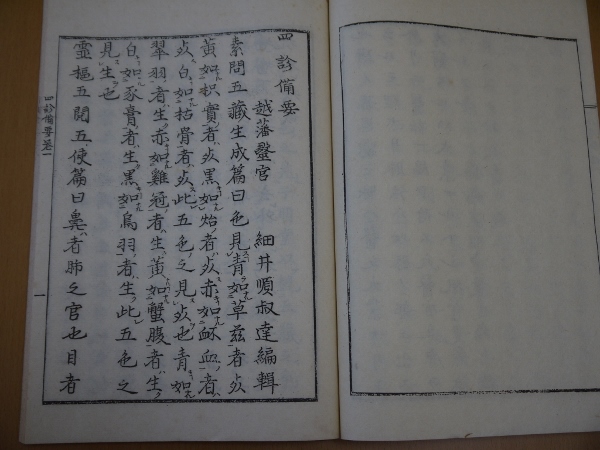 四診備要
越藩毉官　細井順叔達編輯
素問五藏生成篇曰色見青如草玆者死
黄如枳實者死黒如炲者死赤如衃血者
死白如枯骨者死此五色之見死也青如
翠羽者生赤如雞冠者生黄如蟹腹者生
白如豕膏者生黒如烏羽者生此五色之
見生也
靈樞五閲五使篇曰鼻者肺之官也目者
四診備要卷一
一